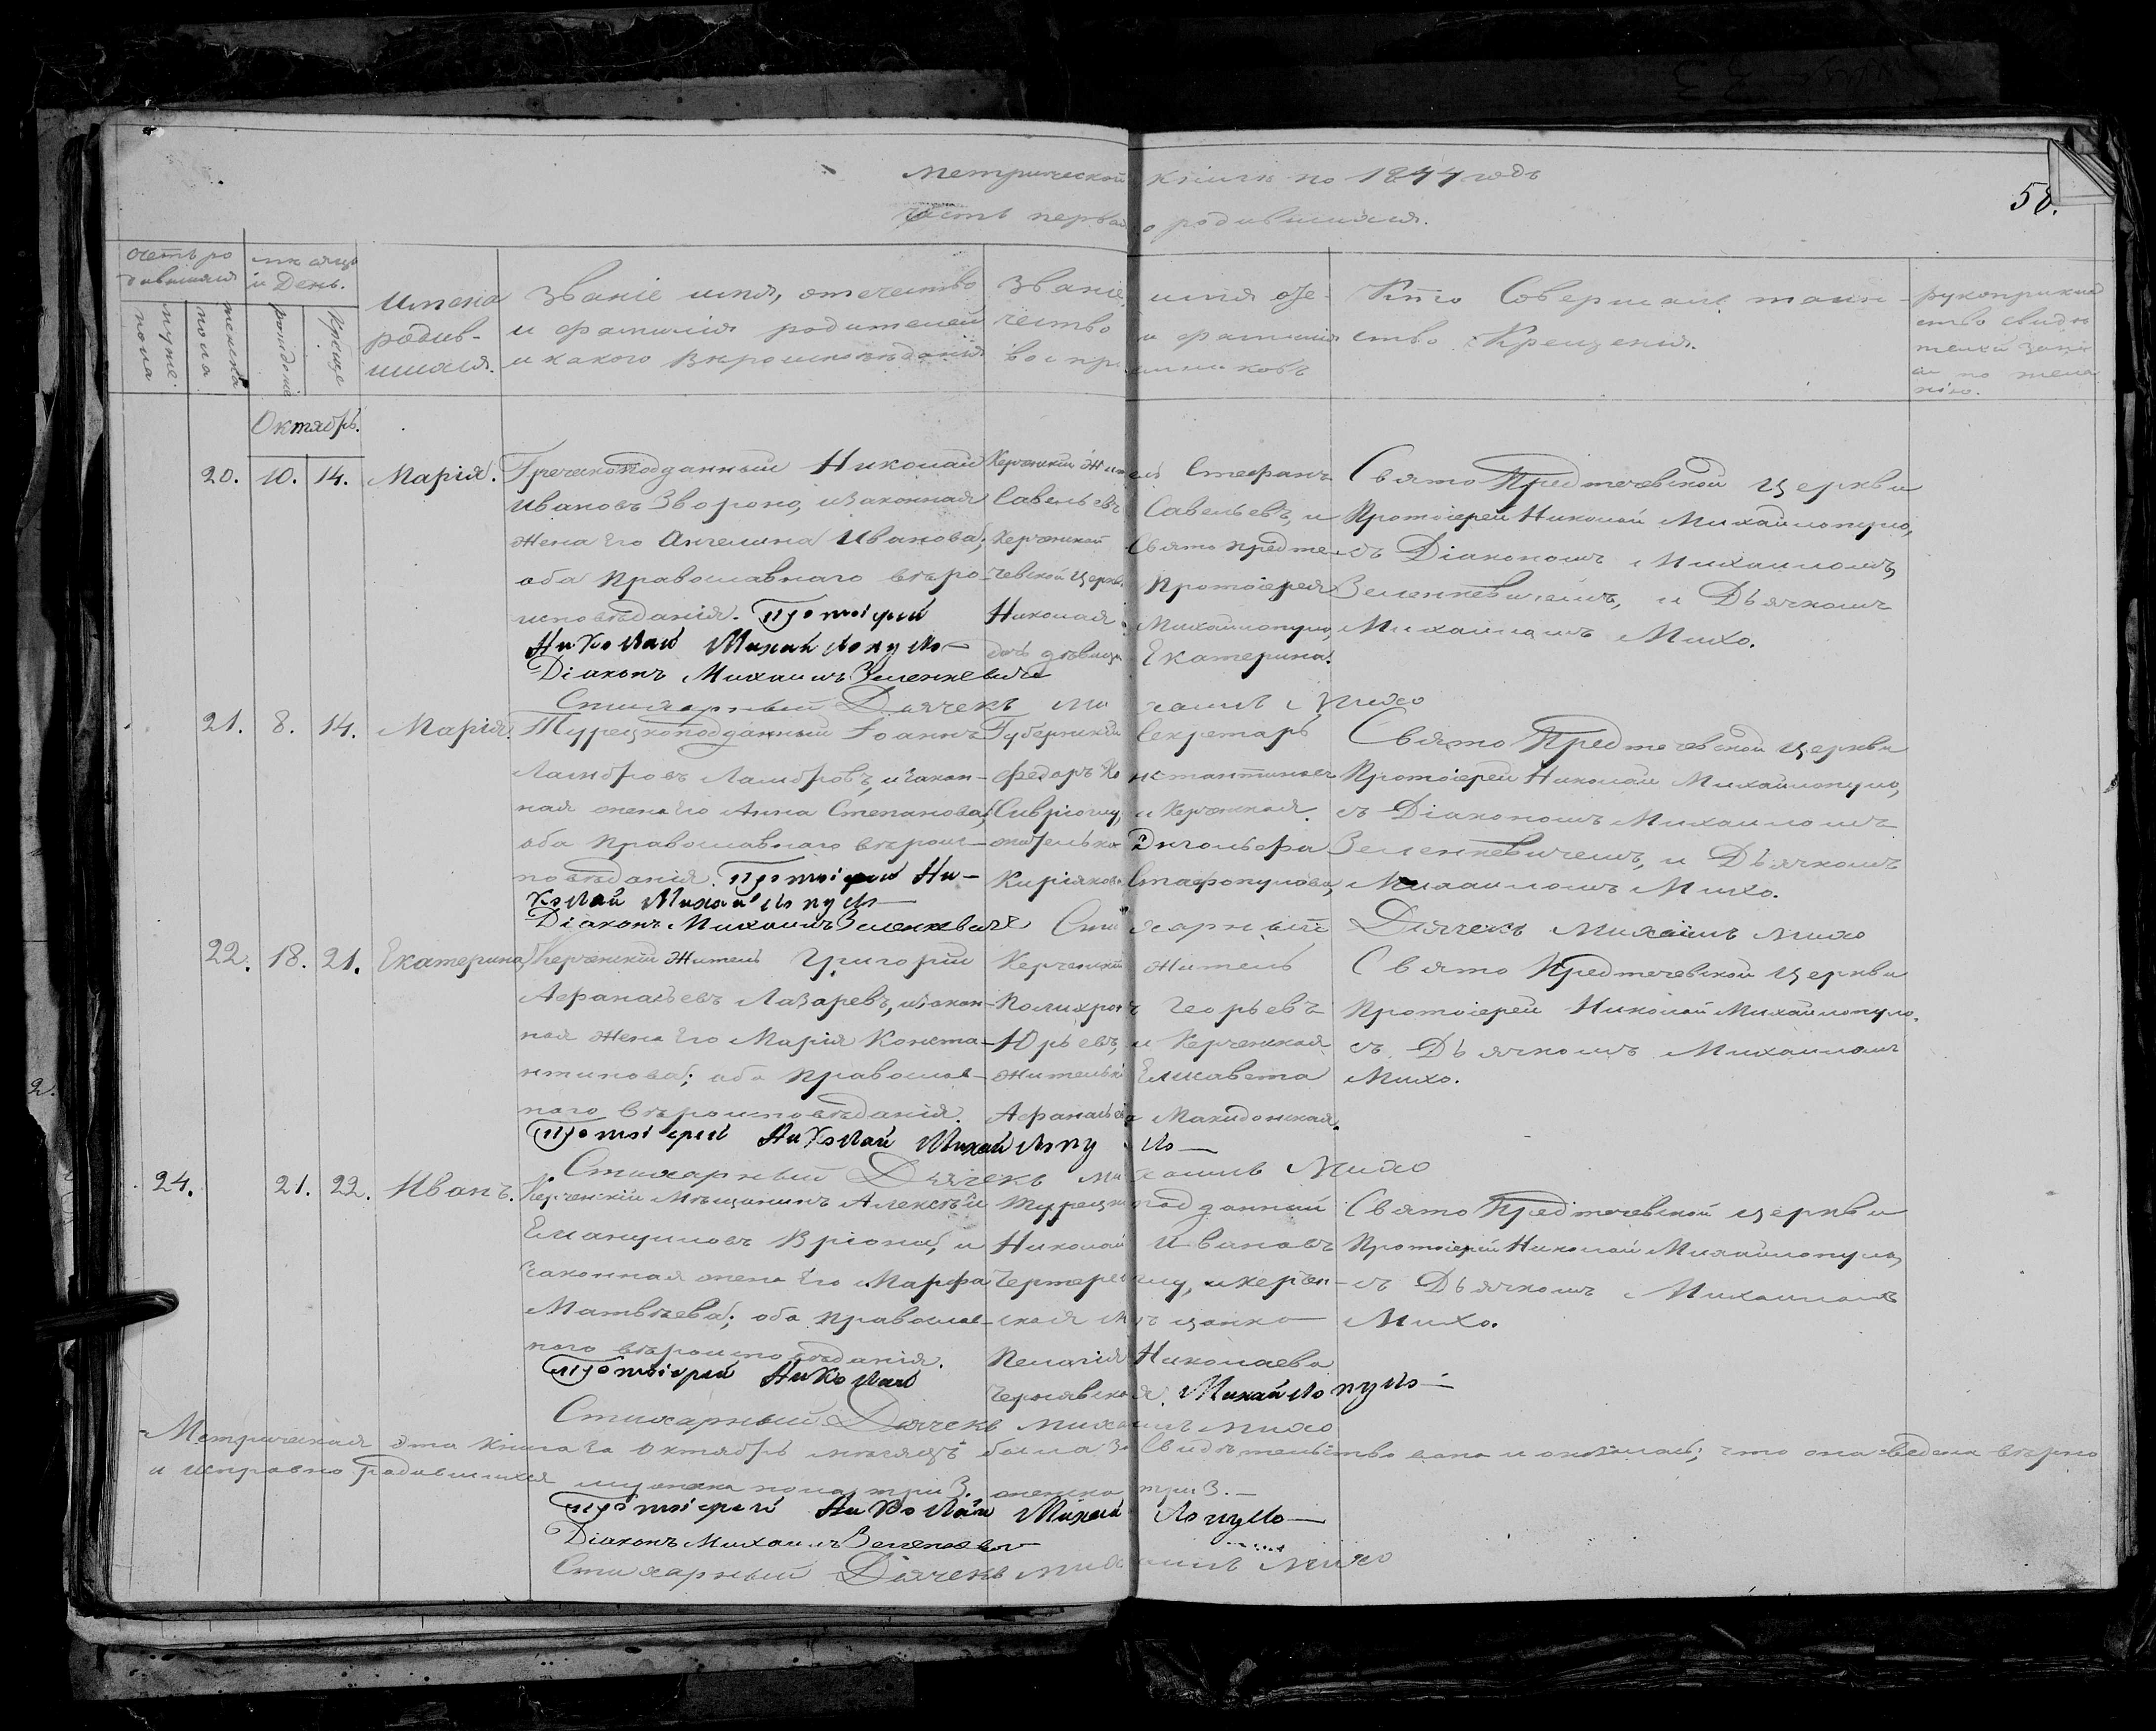 Метрической книги на 1844 годъ
58.
часть первая о родившихся.
счетъ родившихся
мужеска пола
женска пола
мѣсяцъ и День.
рожденіе
Крещеніе
Имена родившихся.
Званіе имя, отечество и фамилія родителей и какого вѣроисповѣданія
Званіе имя отечество и фамилія воспріемниковъ
Кто Совершалъ таинство Крещенія.
рукоприкладство свидѣтелей записи по желанію.
Октябрь.
20. 10. 14. Марія.
Греческоподданный Николай
Ивановъ Звороно, и законная
жена его Ангелина Иванова;
оба Православнаго вѣро-
исповѣданія. Протоіерей
Николай Михайлопуло
Діаконъ Михаилъ Зеленкевичъ
Стихарный Дьячекъ Михаилъ Михо
Керченскій Житель Стефанъ
Савельевъ Савельевъ, и
Керченской Свято Предте-
чевской Церкви Протоіерея
Николая Михайлопуло,
дочь дѣвица Екатерина.
Свято Предтечевской Церкви
Протоіерей Николай Михайлопуло,
съ Діакономъ Михаиломъ
Зеленкевичемъ, и Дьячкомъ
Михаиломъ Михо.
21. 8. 14. Марія.
Турецкоподданный Іоаннъ
Ламбровъ Ламбровъ, и закон-
ная жена его Анна Степанова;
оба Православнаго вѣроис-
повѣданія. Протоіерей Ни-
колай Михайлопуло
Діаконъ Михаилъ Зеленкевичъ Стихарный Дьячекъ Михаилъ Михо
Губернскій Секретарь
Федоръ Константиновъ
Сивріогду, и Керченская
жителька
Киріякова Стафопулова,
Свято Предтечевской Церкви
Протоіерей Николай Михайлопуло,
съ Діакономъ Михаиломъ
Зеленкевичемъ, и Дьячкомъ
Михаиломъ Михо.
22. 18. 21. Екатерина
Керченскій Житель Григорій
Афанасьевъ Лазаревъ, и закон-
ная жена его Марія Конста-
нтинова; оба Православ-
наго вѣроисповѣданія.
Протоіерей Николай Михайлопуло
Стихарный Дьячекъ Михаилъ Михо
Керченскій Житель
Полихронъ Георьевъ
Юрьевъ, и Керченская
жителька Елисавета
Афанасьева Макидонская.
Свято Предтечевской Церкви
Протоіерей Николай Михайлопуло.
съ Дьячкомъ Михаиломъ
Михо.
24. 21. 22. Иванъ.
Керченскій Мѣщанинъ Алексѣй
Емануиловъ Вріоній, и
законная жена его Марфа
Матвѣева; оба Православ-
наго вѣроисповѣданія.
Протоіерей Николай Михайлопуло
Стихарный Дьячекъ Михаилъ Михо
Турецкоподданный
Николай Ивановъ
и керчен-
ская Мѣщанка
Пелагія Николаева
Чернявская.
Свято Предтечевской Церкви
Протоіерей Николай Михайлопуло,
съ Дьячкомъ Михаиломъ
Михо.
Метрическая эта книга за Октябрь мѣсяцъ была за Свидѣтельствована и оказалась; что она ведена вѣрно
и исправно родившихся мужеска пола три 3. женска три 3.
Протоіерей Николай Михайлопуло
Діаконъ Михаилъ Зеленкевичъ
Стихарный Дьячекъ Михаилъ Михо
2.